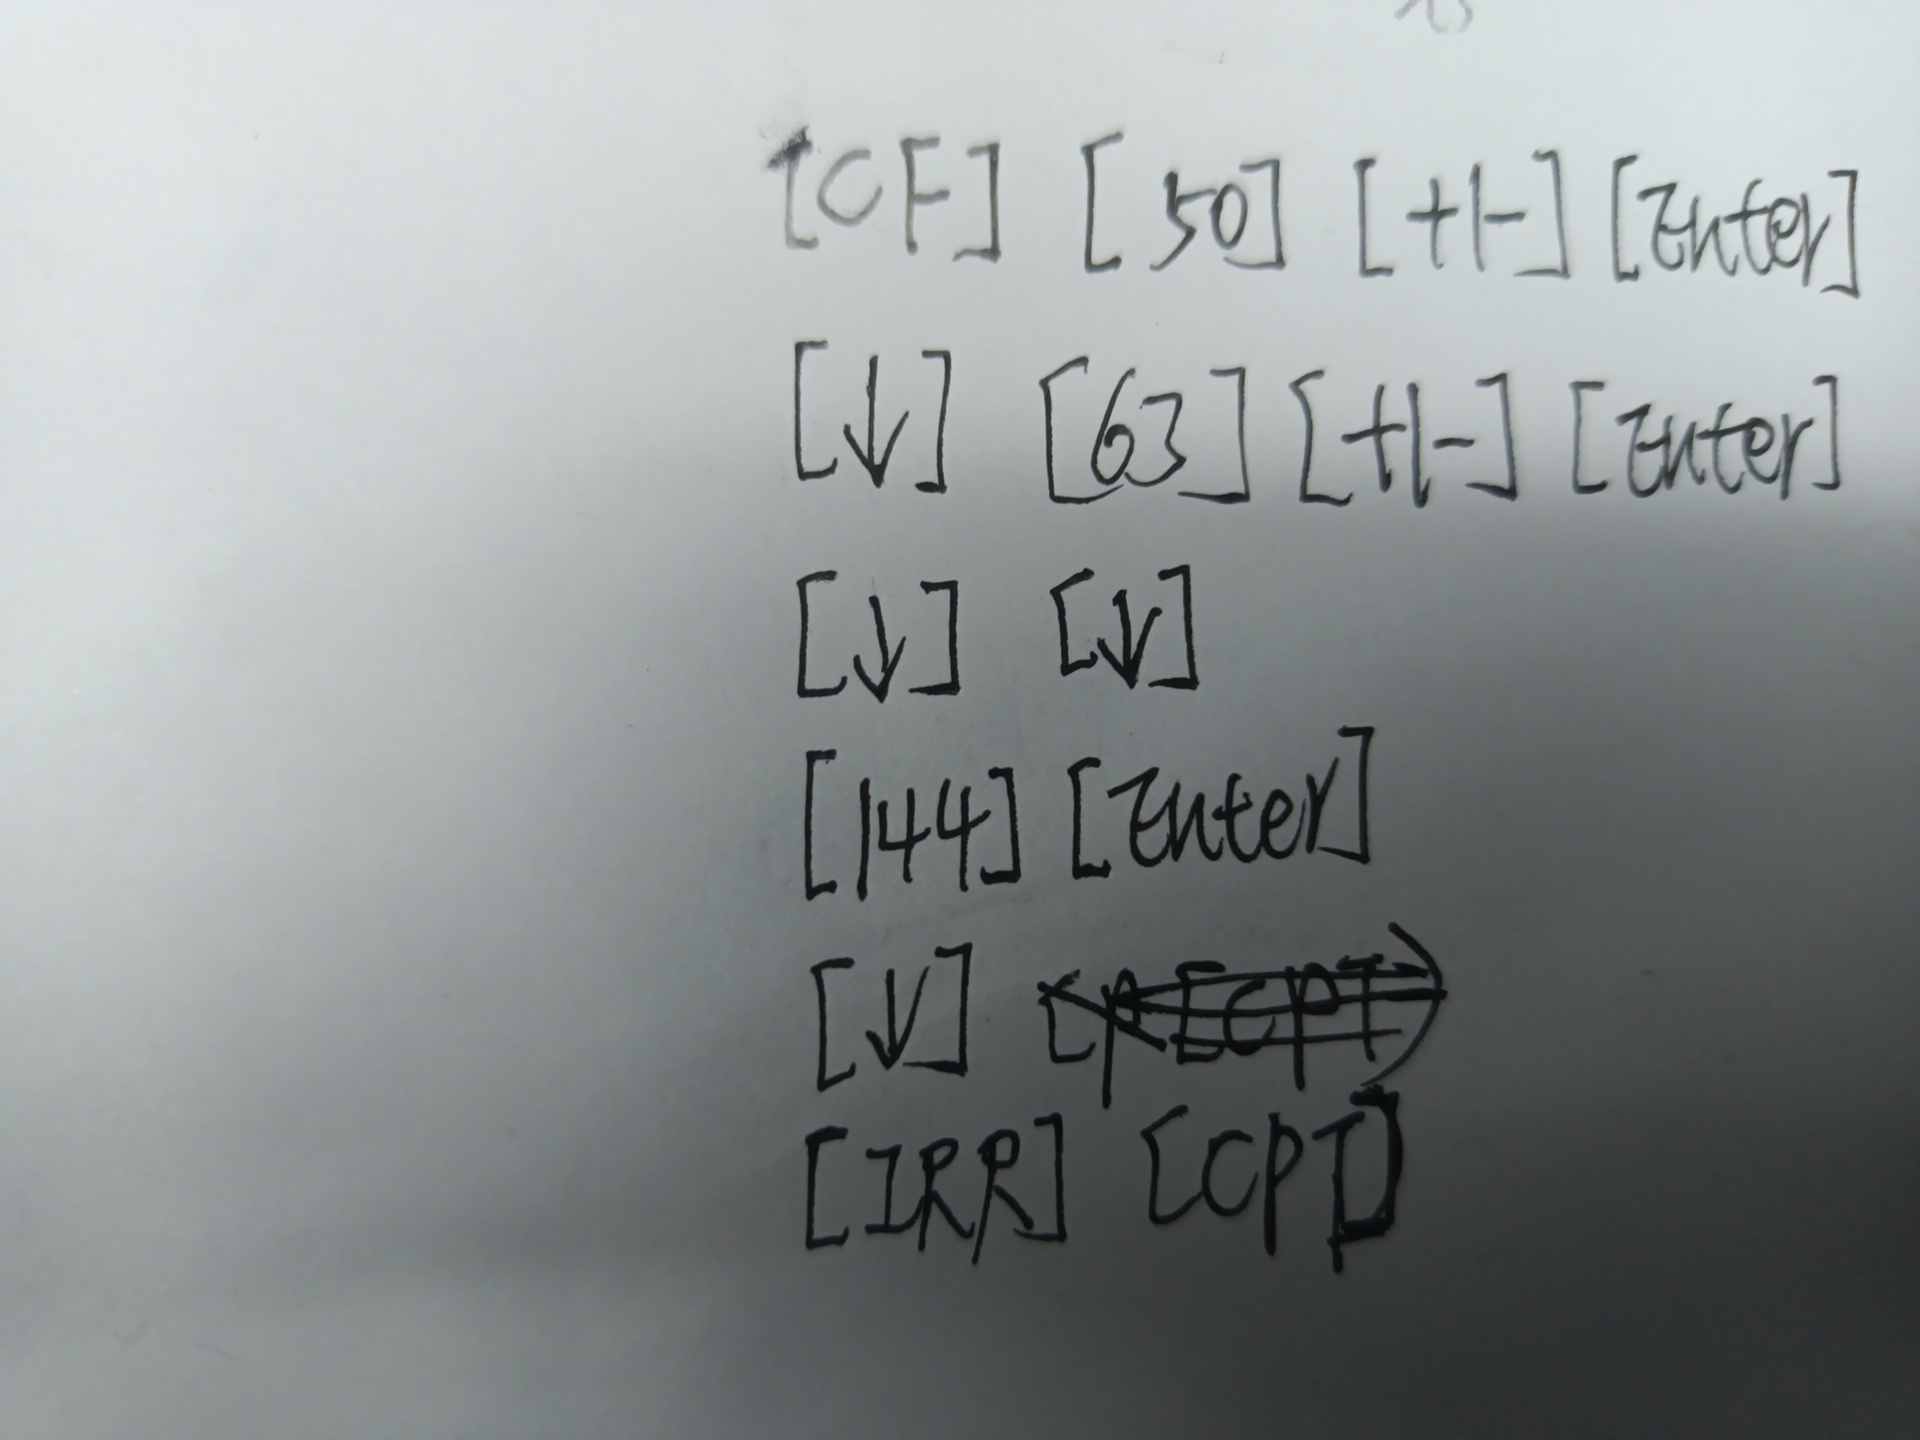 [CF] [50] [+|-] [Enter]
[↓] [63] [+|-] [Enter]
[↓] [↓]
[144] [Enter]
[↓]
[IRR] [CPT]